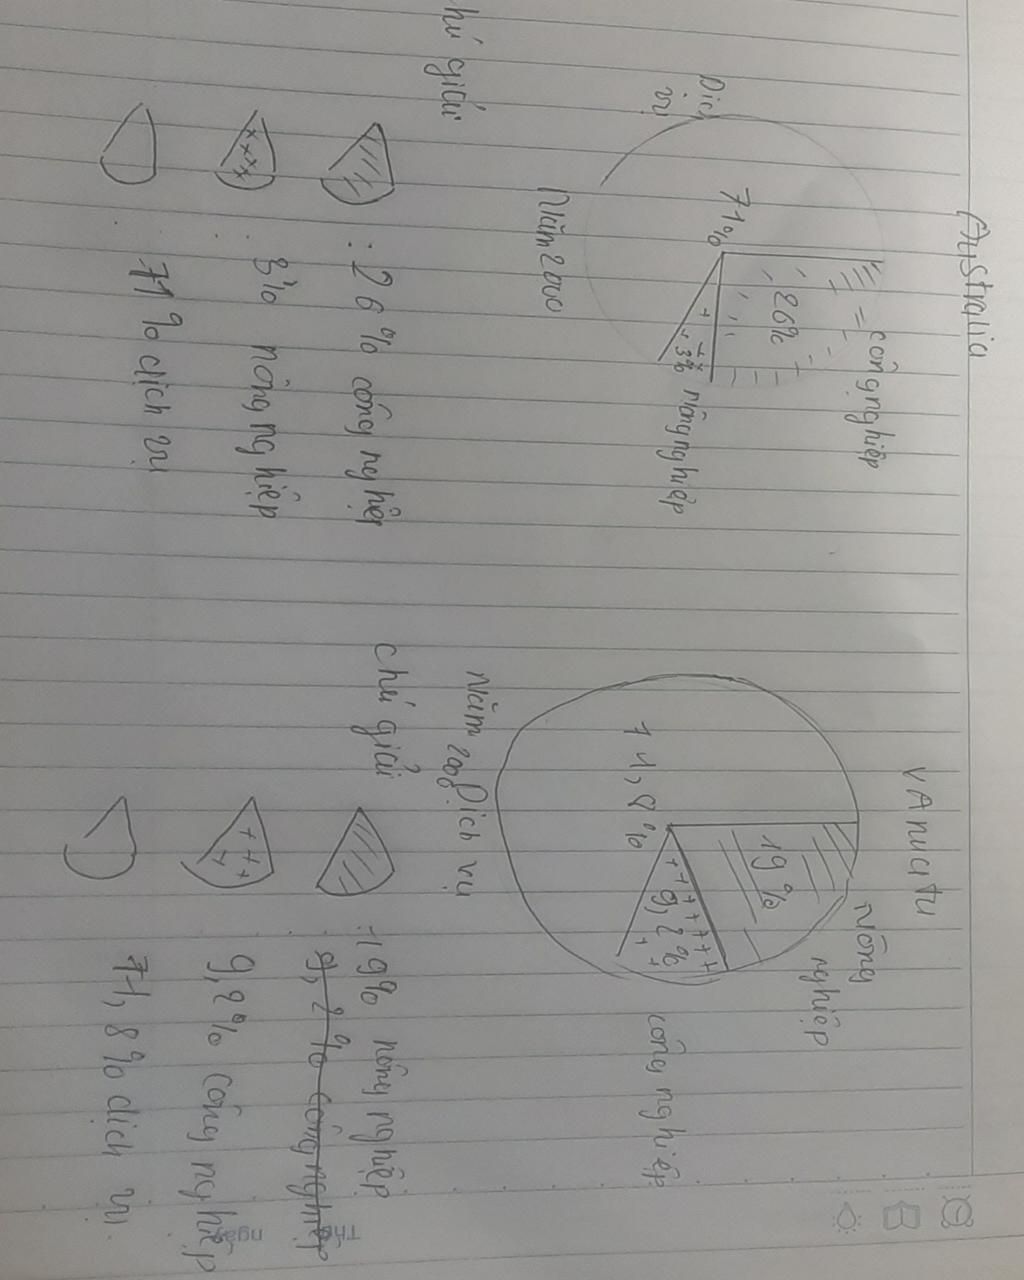 Australia
công nghiệp
26%
71%
Dịch
vụ
3%
nông nghiệp
Năm 2000
chú giải
: 26% công nghiệp
: 3% nông nghiệp
: 71% dịch vụ
VANUATU
Nông
nghiệp
19%
9,2%
71,8%
công nghiệp
Dịch vụ
Năm 2000
chú giải
: 19% nông nghiệp
: 9,2% công nghiệp
9,2% công nghiệp
71,8% dịch vụ
Thứ
ngày